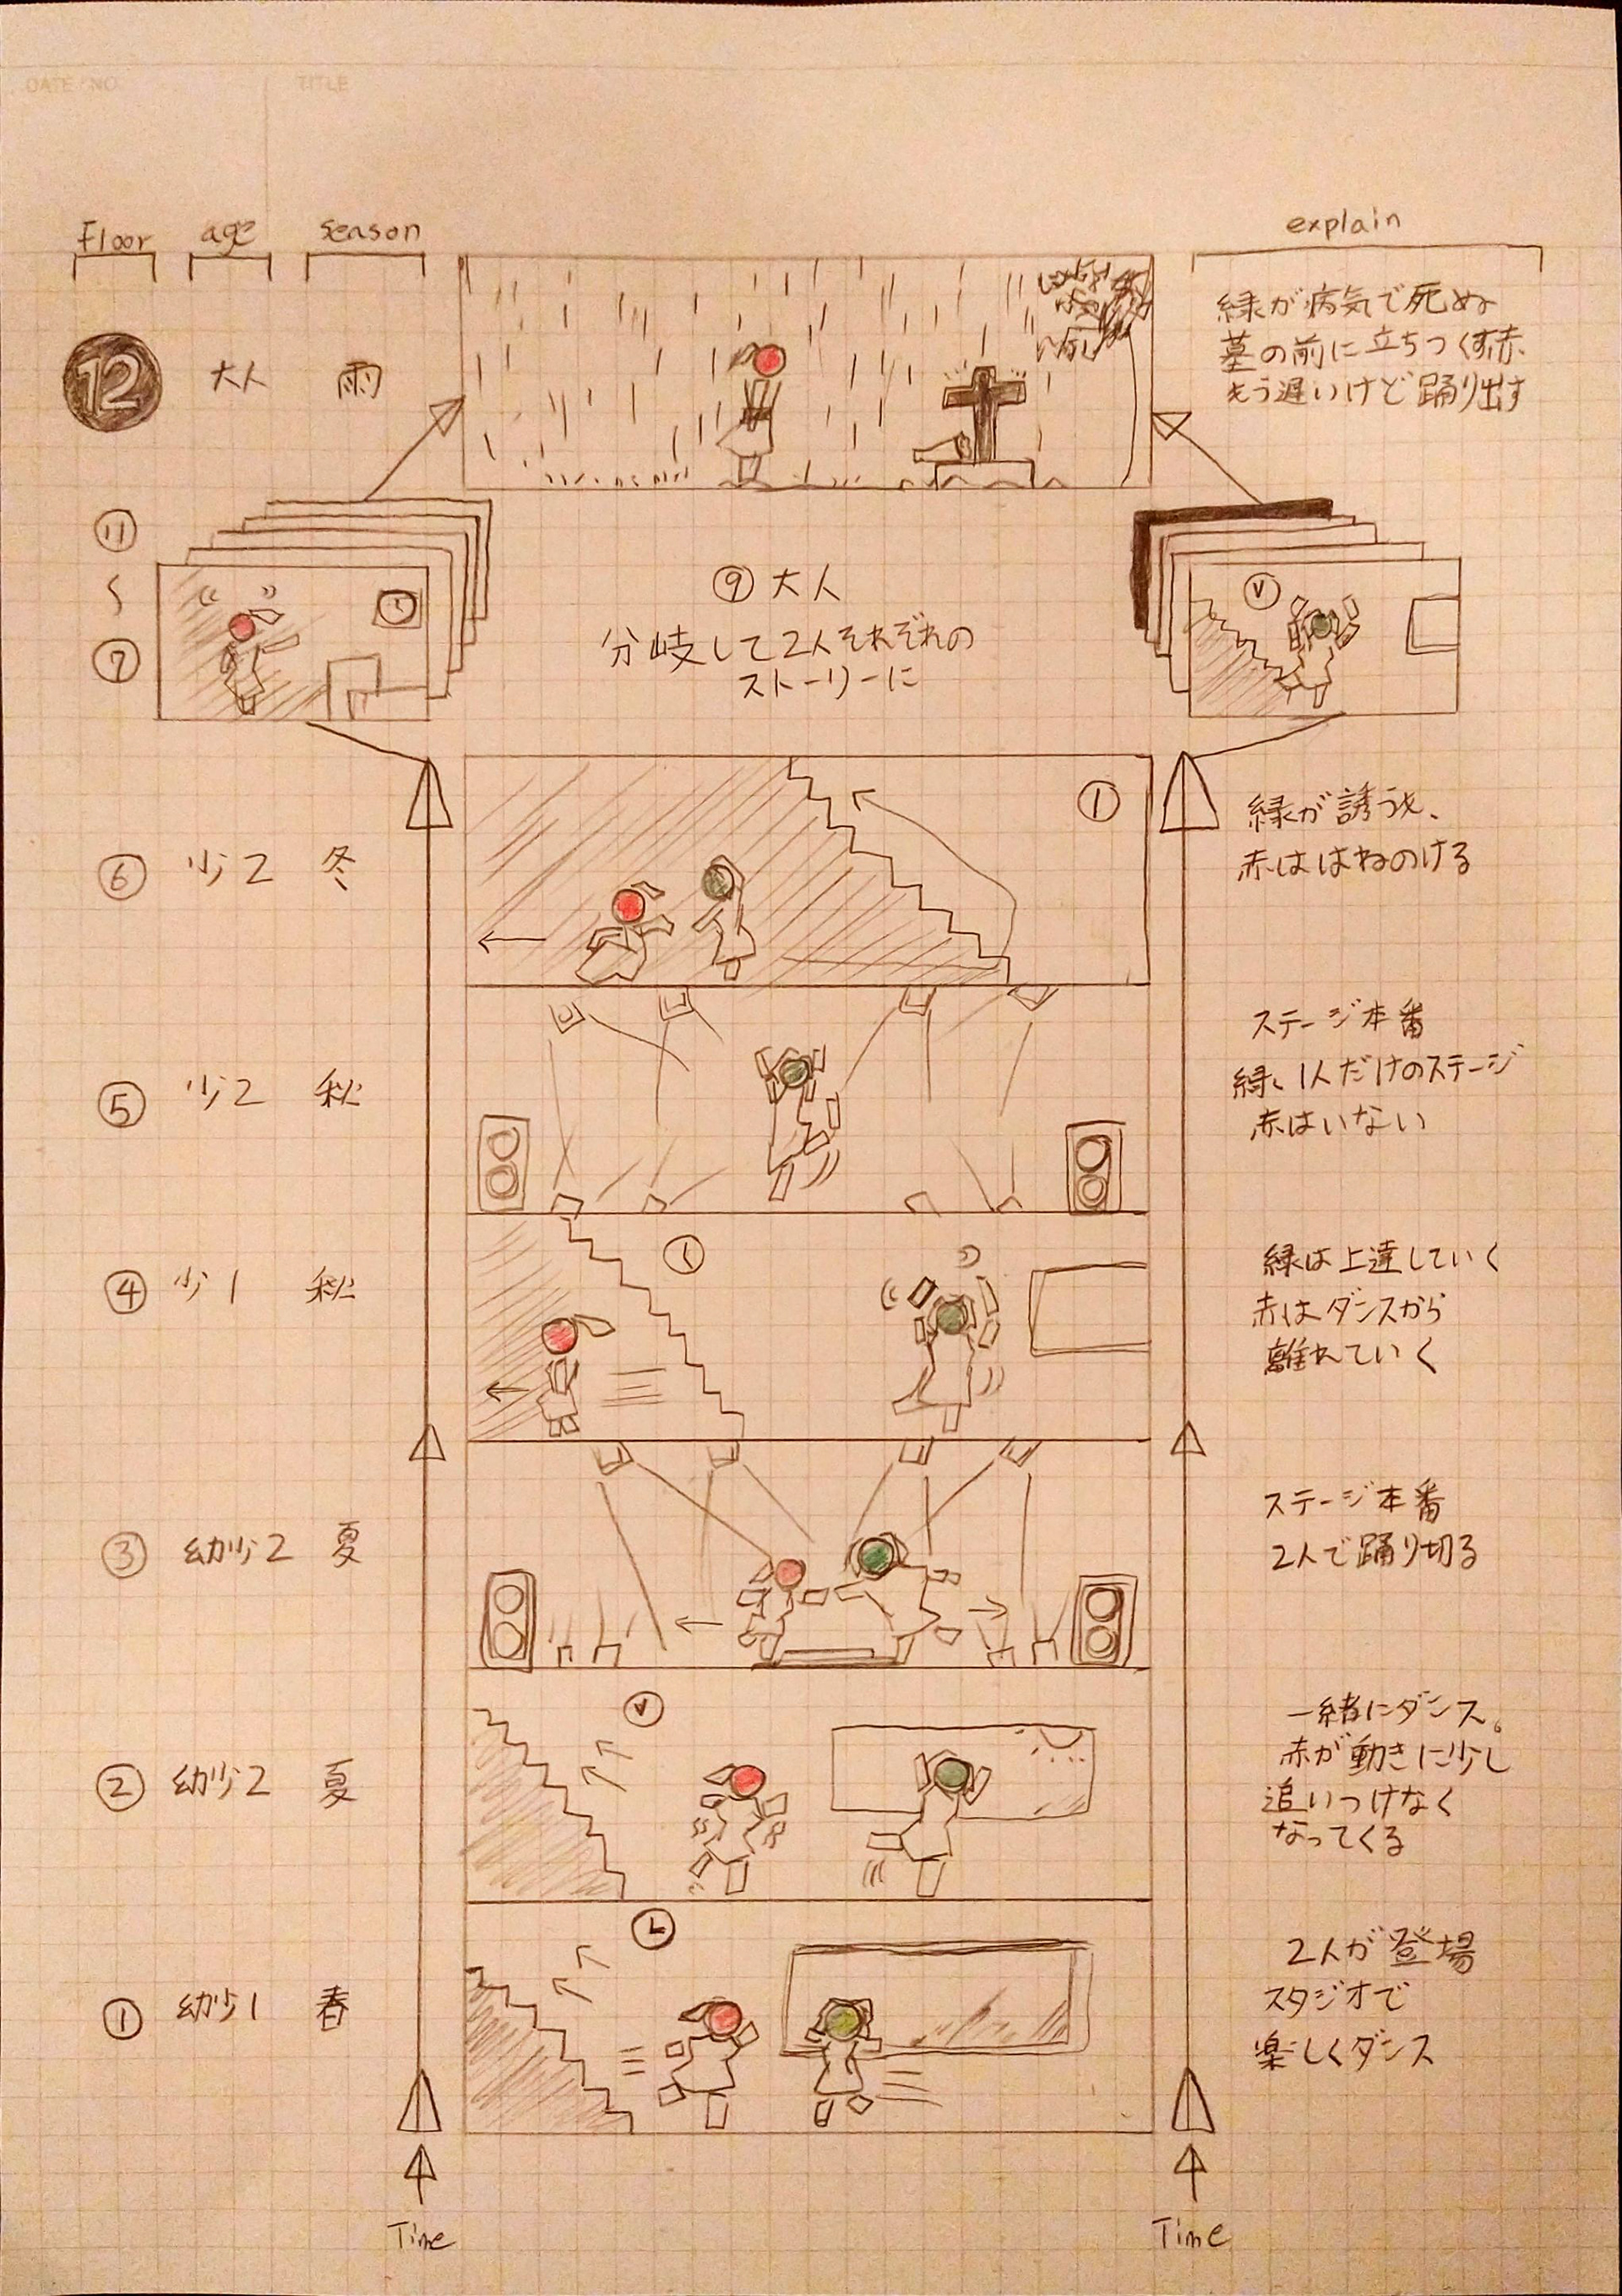 DATE / NO.
TITLE
Floor
age
season
explain
12
大人
雨
緑が病気で死ぬ
墓の前に立ちつくす赤、
もう遅いけど踊り出す
⑪
〜
⑦
⑨ 大人
分岐して2人それぞれの
ストーリーに
⑥
少2
冬
緑が誘うも、
赤ははねのける
⑤
少2
秋
ステージ本番
緑、1人だけのステージ
赤はいない
④
少1
秋
緑は上達していく
赤はダンスから
離れていく
③
幼少2
夏
ステージ本番
2人で踊り切る
②
幼少2
夏
一緒にダンス。
赤が動きに少し
追いつけなく
なってくる
①
幼少1
春
2人が登場
スタジオで
楽しくダンス
Time
Time